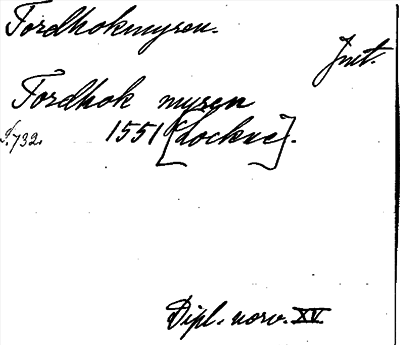 Tordhokmyren.
Jmt.
Tordhok myren
S.732. 1551 [Lockne].
Dipl. norv. XV